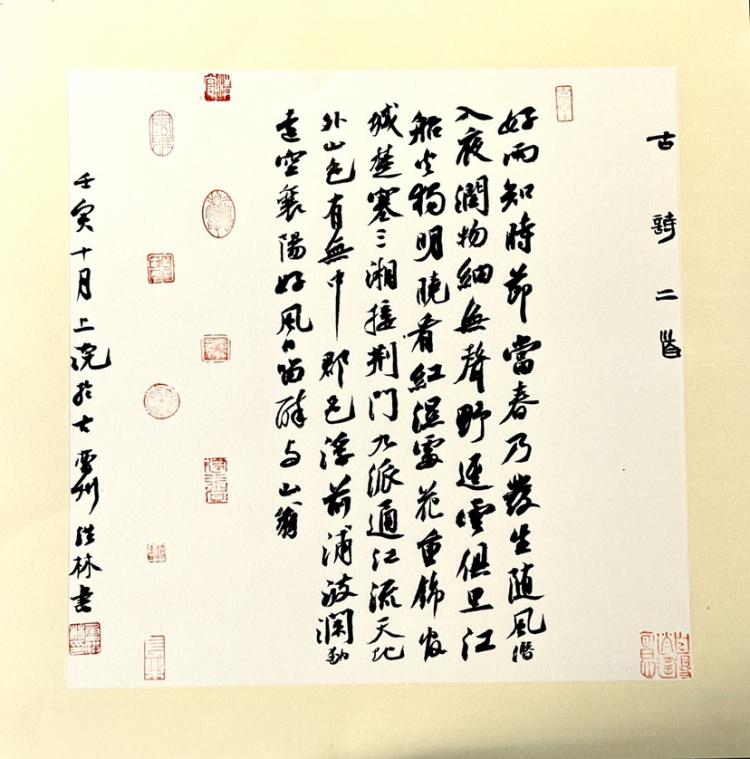 古詩二首
好雨知時節當春乃發生随風潛
入夜潤物細無聲野逕雲俱黑江
船火獨明曉看紅濕處花重錦官
城楚塞三湘接荆門九派通江流天地
外山色有無中郡邑浮前浦波瀾動
遠空襄陽好風日留醉与山翁
壬寅十月上浣於雲州林書